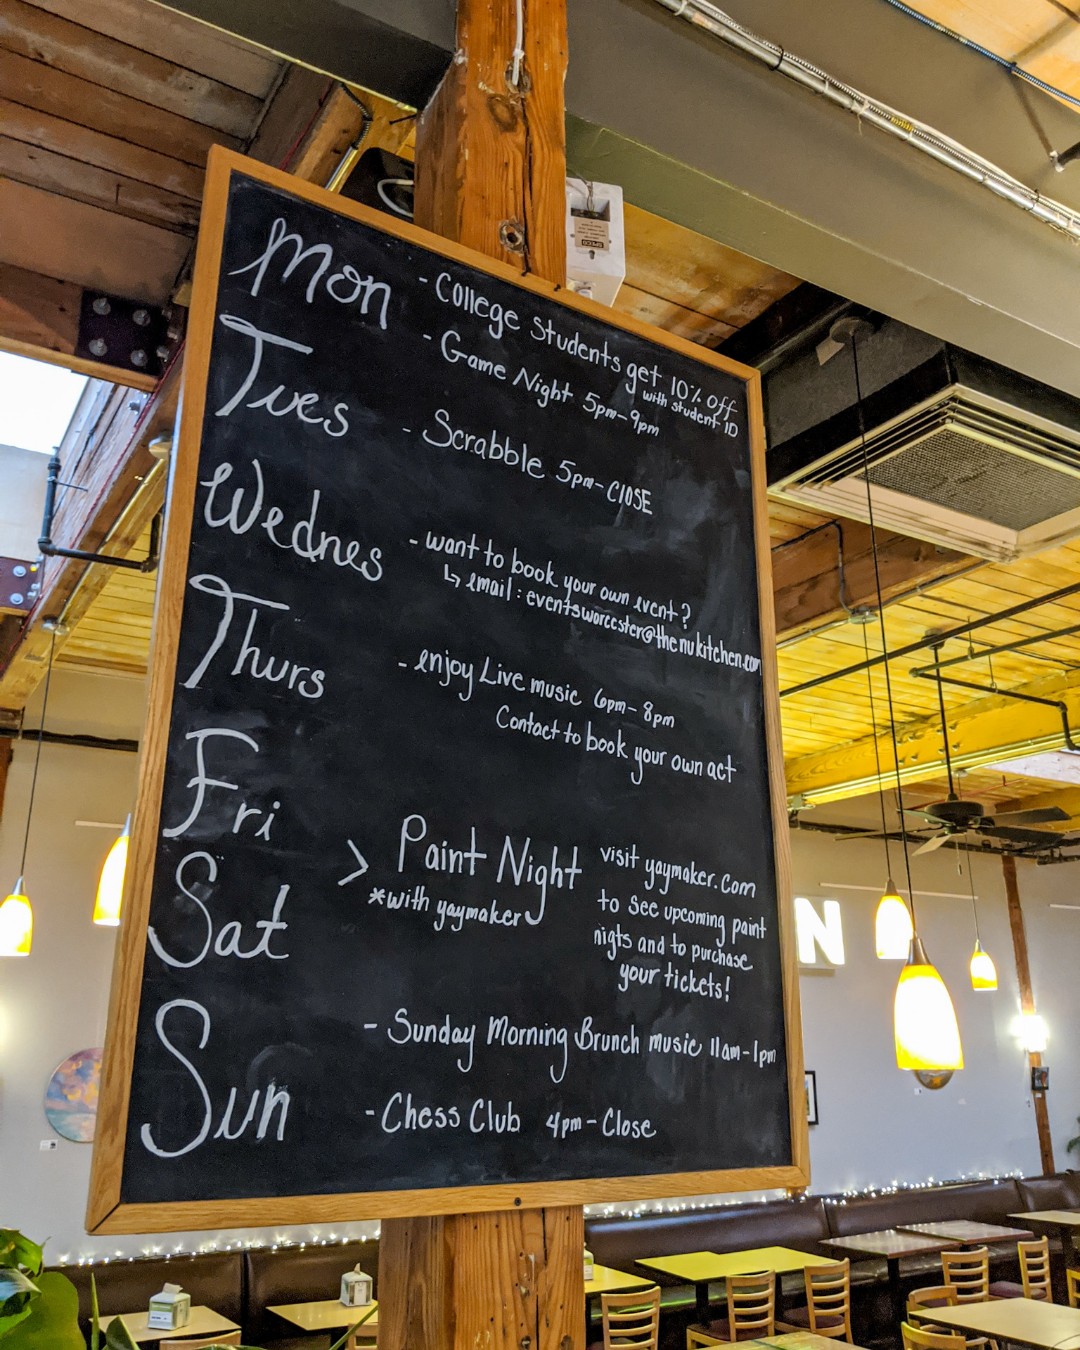 Mon
- College Students get 10% off
with student ID
- Game Night 5pm-9pm
Tues
- Scrabble 5pm-ClOSE
Wednes
- want to book your own event?
↳ email : eventsworcester@thenukitchen.com
Thurs
- enjoy Live music 6pm-8pm
Contact to book your own act
Fri
Sat
> Paint Night
*with yaymaker
visit yaymaker.com
to see upcoming paint
nigts and to purchase
your tickets!
Sun
- Sunday Morning Brunch music 11am-1pm
- Chess Club 4pm-Close
N